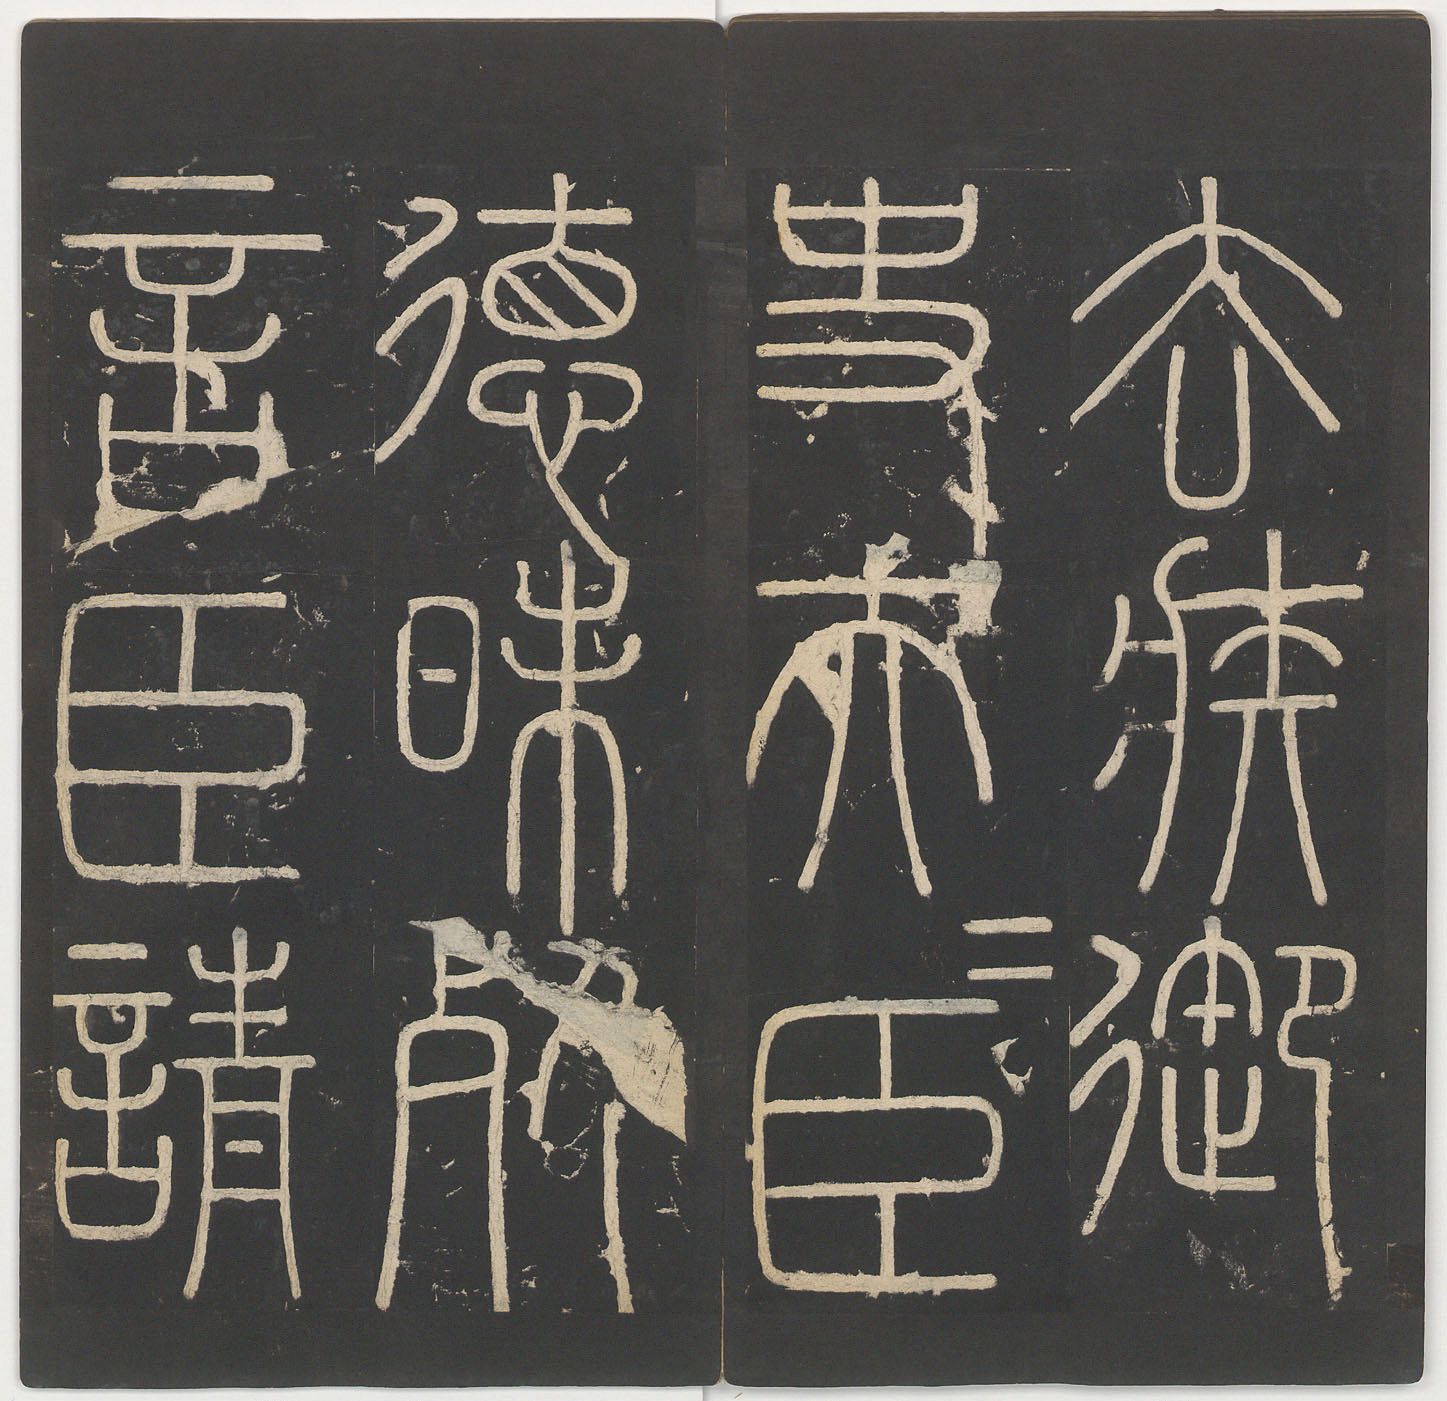 去疾御
史夫＝臣
德昧死
言臣請